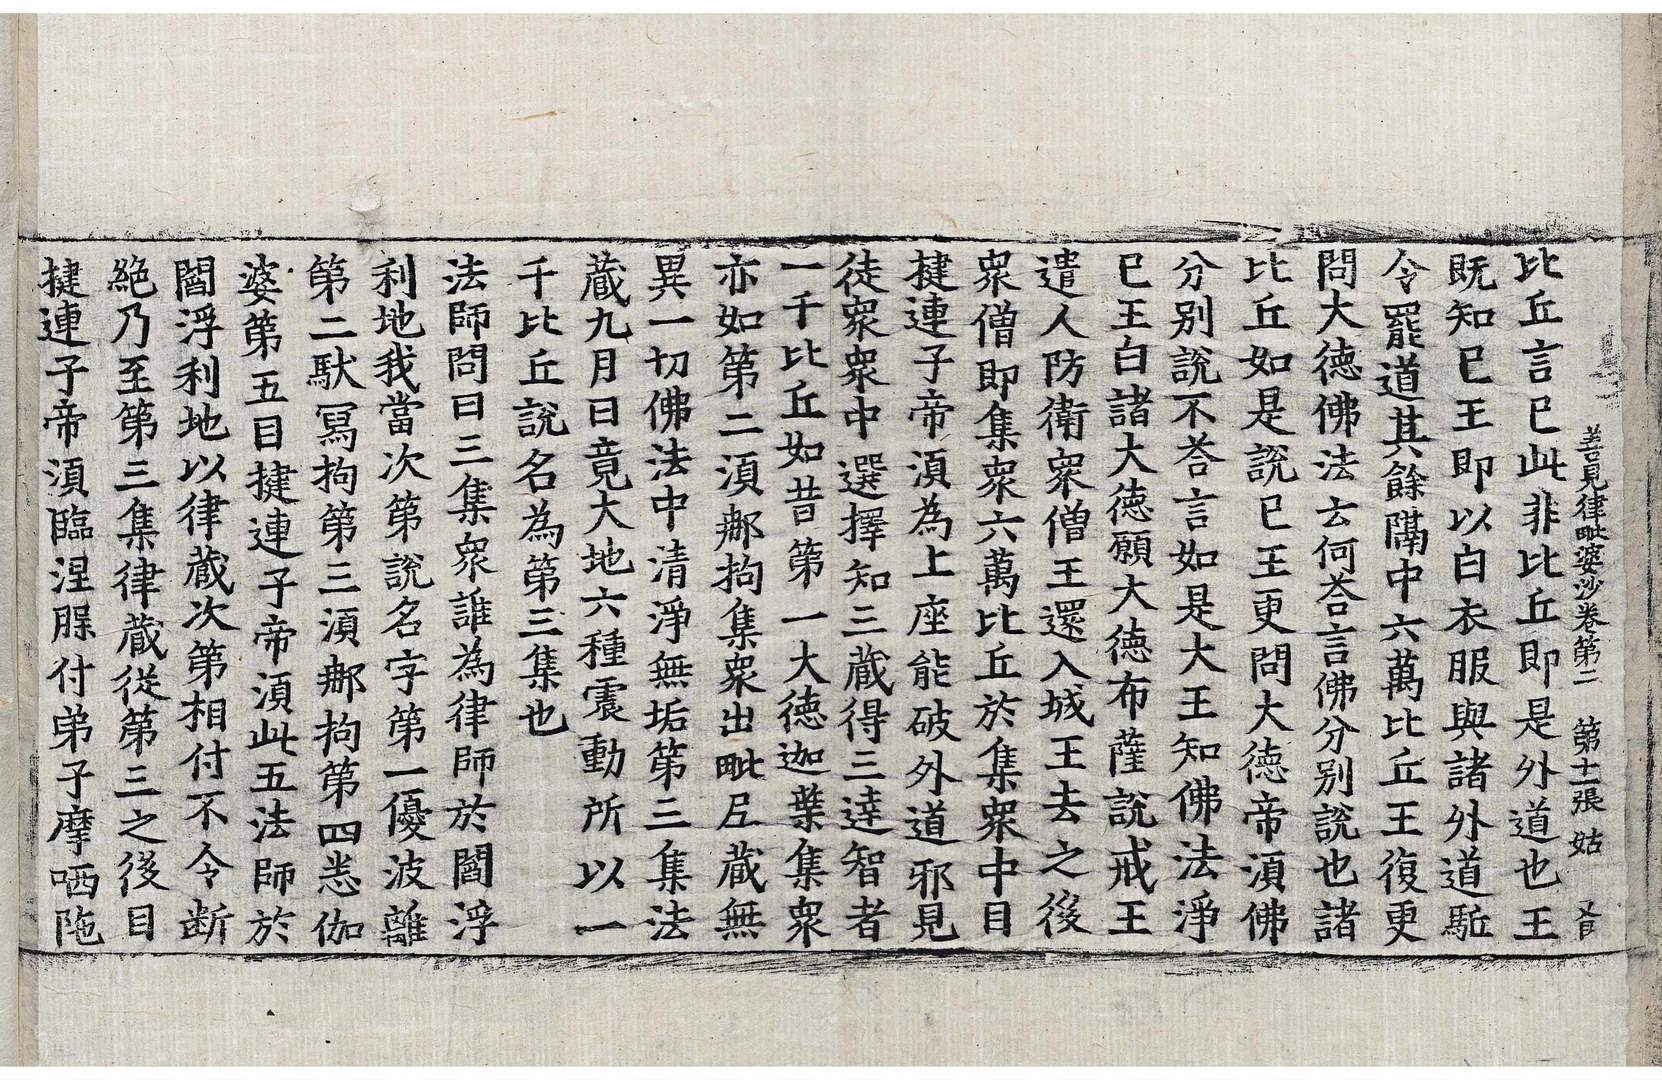 善見律毗婆沙卷第二 第十二張 姑
比丘言已此非比丘即是外道也王
既知已王即以白衣服與諸外道駈
令罷道其餘隔中六萬比丘王復更
問大德佛法云何荅言佛分別説也諸
比丘如是説已王更問大德帝湏佛
分別説不荅言如是大王知佛法淨
已王白諸大德願大德布薩説戒王
遣人防衛衆僧王還入城王去之後
衆僧即集衆六萬比丘於集衆中目
揵連子帝湏為上座能破外道邪見
徒衆衆中選擇知三蔵得三達智者
一千比丘如昔第一大德迦葉集衆
亦如第二湏㮈拘集衆出毗尼蔵無
異一切佛法中清淨無垢第三集法
蔵九月日竟大地六種震動所以一
千比丘説名為第三集也
法師問曰三集衆誰為律師於閻浮
利地我當次第説名字第一優波離
第二馱寫拘第三湏㮈拘第四悉伽
婆第五目揵連子帝湏此五法師於
閻浮利地以律蔵次第相付不令断
絶乃至第三集律蔵從第三之後目
揵連子帝湏臨涅槃付弟子摩哂陁